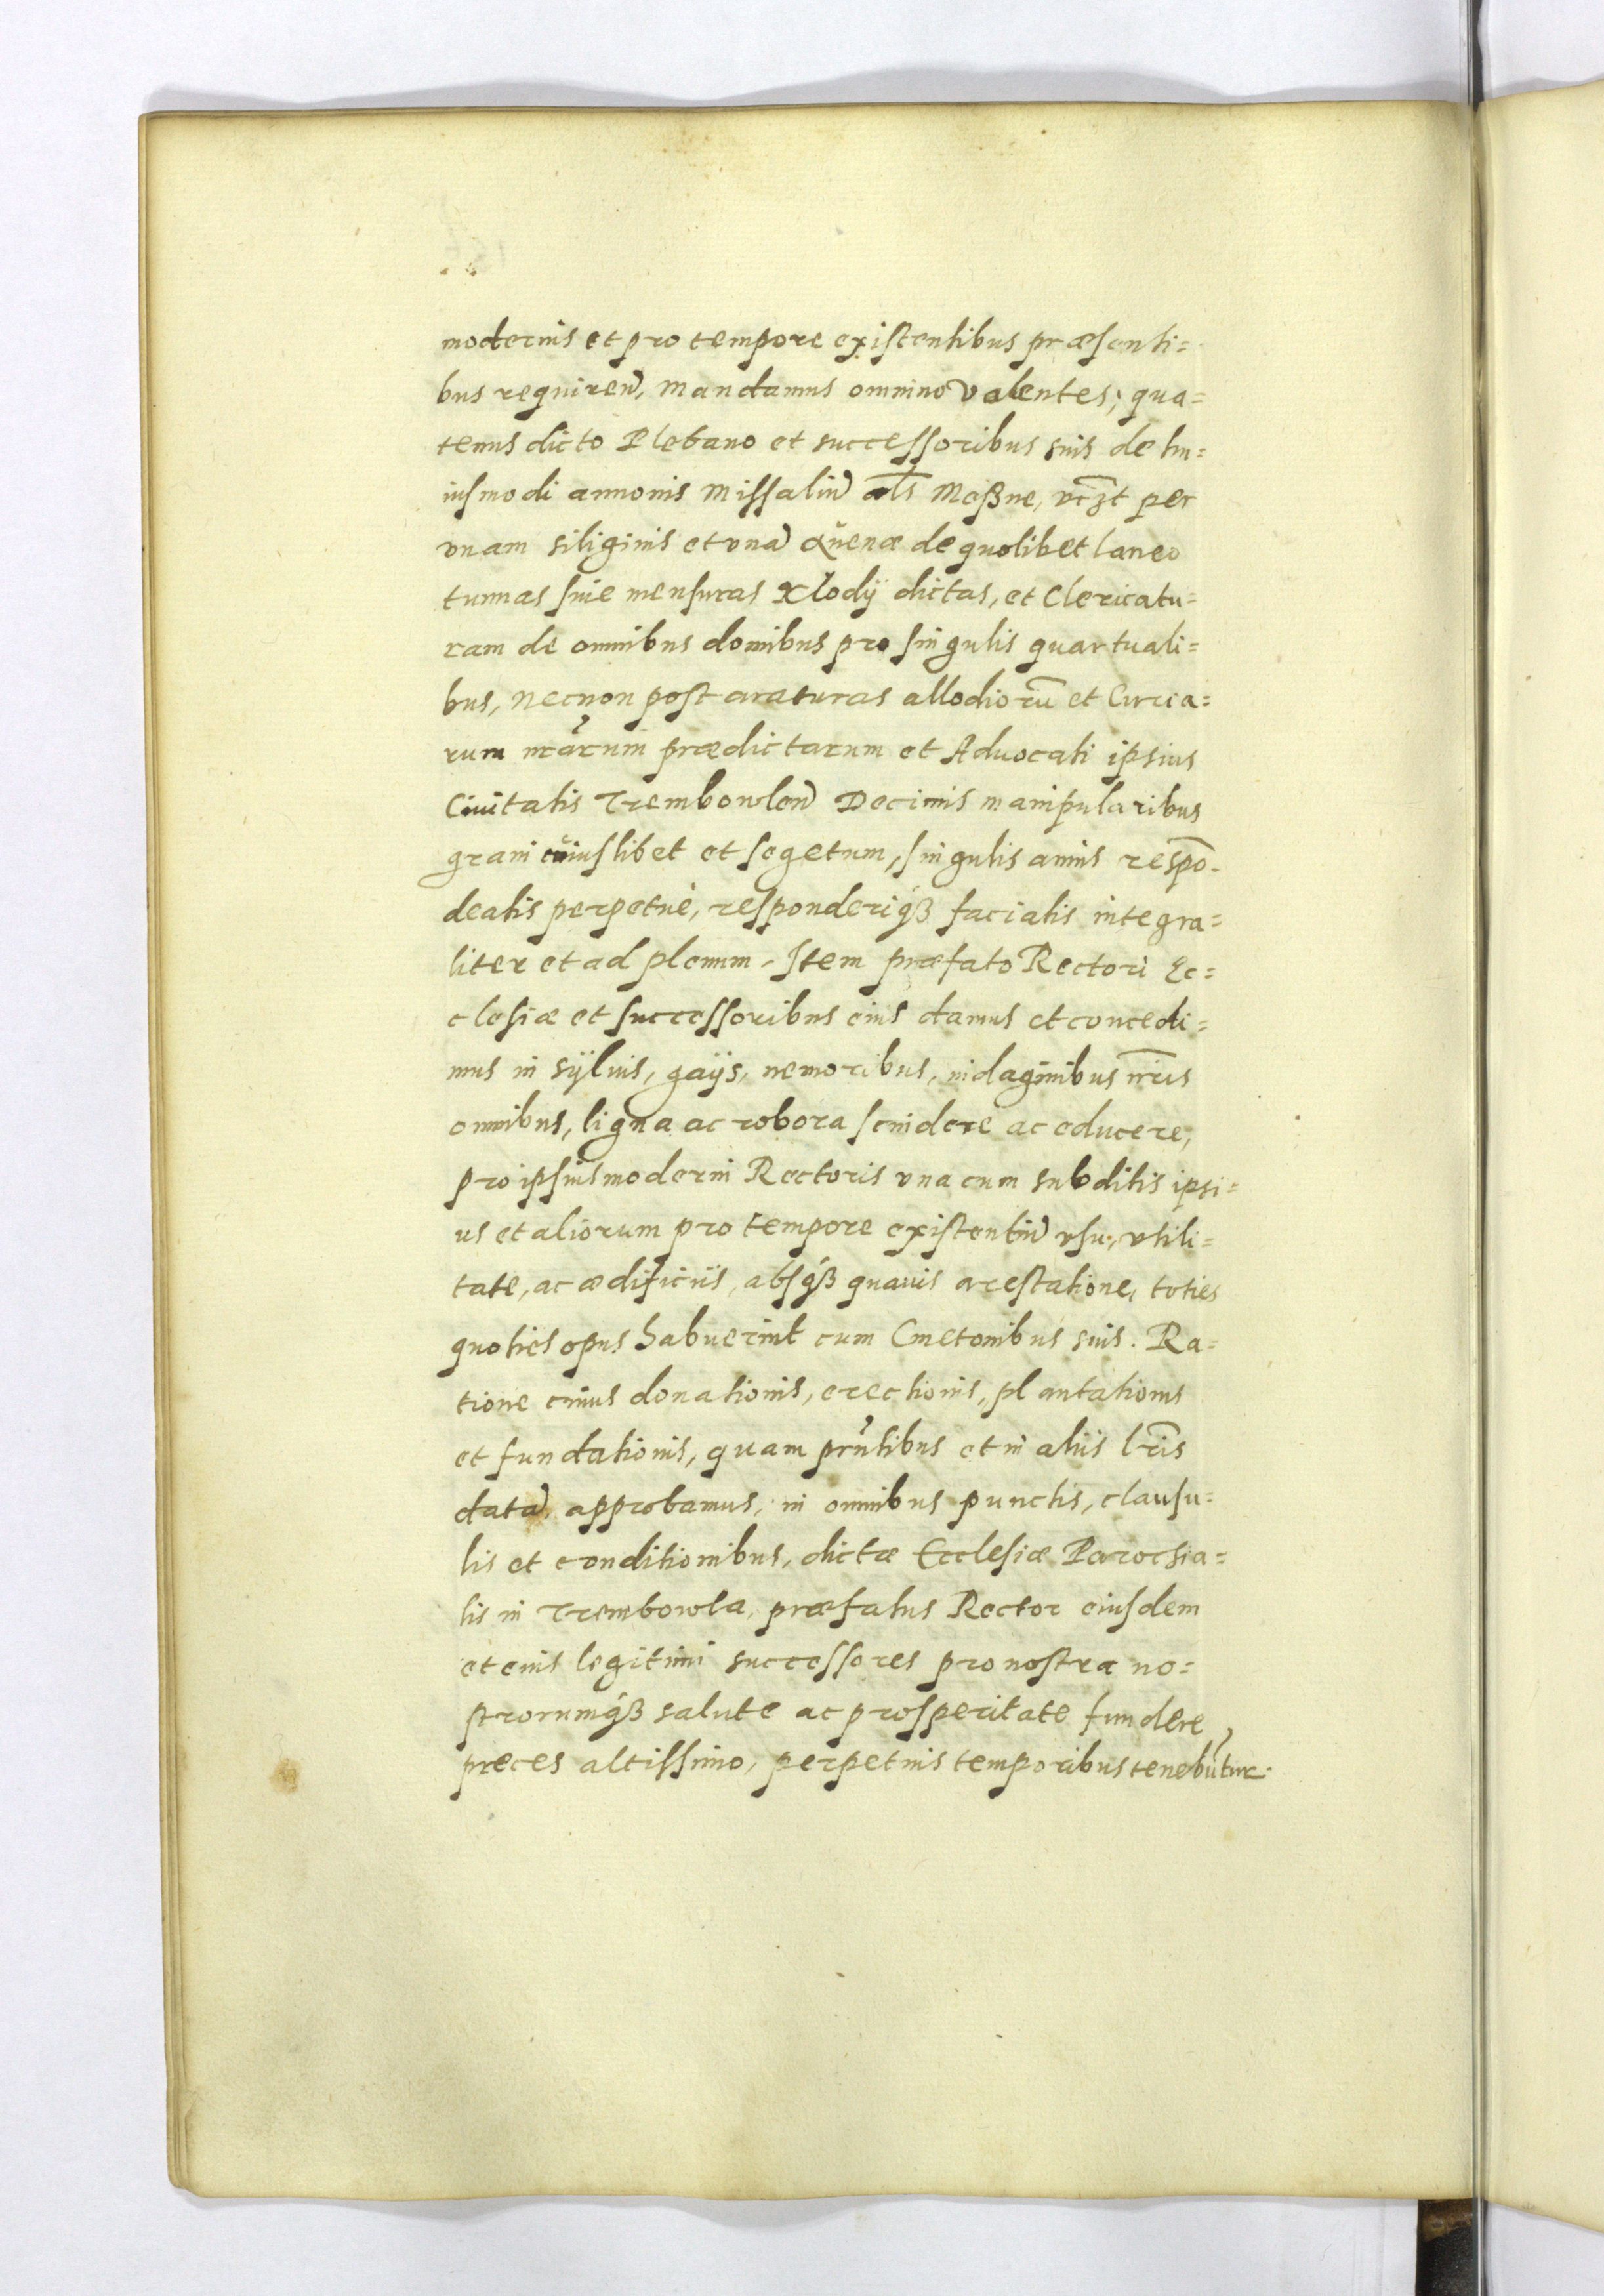 modernis et pro tempore existentibus præsenti=
bus requiren, mandamus omnino valentes, qua=
tenus dicto Plebano et successoribus suis de hu=
iusmodi annonis Missaliu als Meßne, vczt per
vnam siliginis et vna auenæ de quolibet laneo
tunnas siue mensuras Klody dictas, et Clericatu=
ram de omnibus domibus pro singulis quartuali=
bus, necnon post araturas allodioru et Curia=
rum nrarum prædictarum et Aduocati ipsius
Ciuitatis Trembowlen Decimis manipularibus
grani cuiuslibet et segetum, singulis annis respo-
deatis perpetuè, responderiqß faciatis integra=
liter et ad plenum. Item præfato Rectori Ec=
clesiæ et successoribus eius damus et concedi=
mus in sÿluis, gaÿs, nemoribus, indaginibus nris
omnibus, ligna ac robora scindere ac educere,
pro ipsius moderni Rectoris vna cum subditis ipsi=
us et aliorum pro tempore existentiu vsu, vtili=
tate, ac ædificiis, absqß quauis arestatione, toties
quoties opus habuerint cum Cmetonibus suis. Ra=
tione cuius donationis, erectionis, plantationis
et fundationis, quam prntibus et in aliis lris
data approbamus, in omnibus punctis, clausu=
lis et conditionibus, dictæ Ecclesiæ Parochia=
lis in Trembowla, præfatus Rector eiusdem
et eius legitimi successores pro nostra no=
strorumqß salute ac prosperitate fundere
preces altissimo, perpetuis temporibus tenebutur.